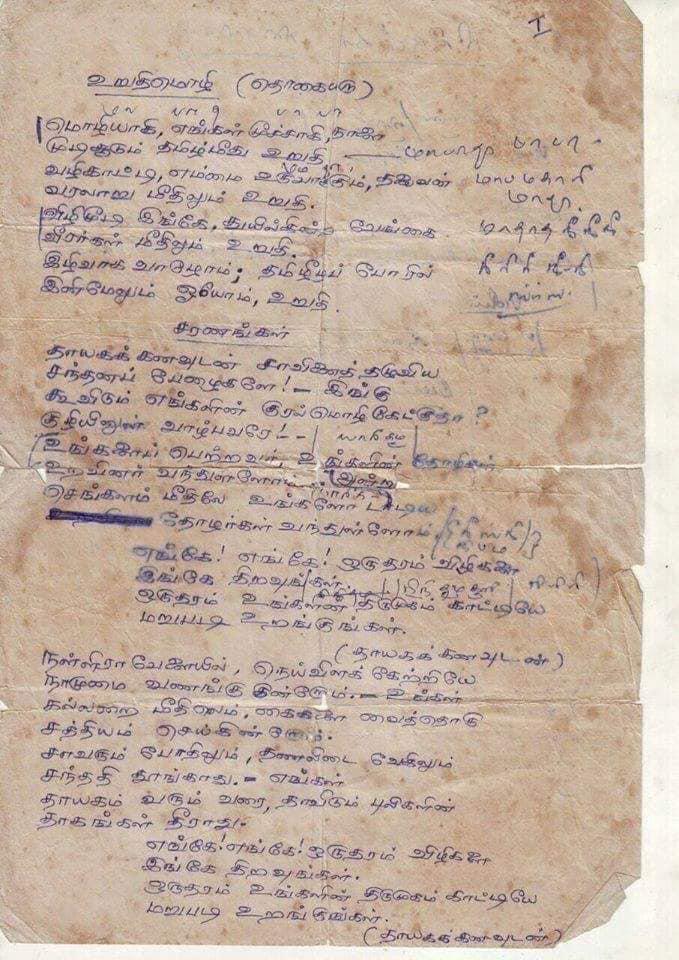 I
உறுதிமொழி (தொகையறு)
மொழியாகி, எங்கள் மூச்சாகி, நாளை
முடிசூடும் தமிழ்மீது உறுதி
வழிகாட்டி, எம்மை உருவாக்கும், தலைவன்
வரலாறு மீதிலும் உறுதி.
விழிமூடி இங்கே, துயில்கின்ற வேங்கை
வீரர்கள் மீதிலும் உறுதி.
இழிவாக வாழோம்; தமிழீழப் போரில்
இனிமேலும் ஓயோம், உறுதி.
சரணங்கள்
தாயகக் கனவுடன் சாவினைத் தழுவிய
சந்தனப் பேழைகளே! - இங்கு
கூவிடும் எங்களின் குரல்மொழி கேட்குதா?
குழியினுள் வாழ்பவரே! -
உங்களைப் பெற்றவர், உங்களின் தோழிகள்
உறவினர் வந்துள்ளோம். அன்று
செங்களம் மீதிலே உங்களோ டாடிய
தோழர்கள் வந்துள்ளோம்.
எங்கே! எங்கே! ஒருதரம் விழிகளை
இங்கே திறவுங்கள்.
ஒருதரம் உங்களின் திருமுகம் காட்டியே
மறுபடி உறங்குங்கள்.
(தாயகக் கனவுடன்)
நள்ளிரா வேளையில், நெய்விளக் கேற்றியே
நாமுமை வணங்கு கின்றோம். - உங்கள்
கல்லறை மீதிலெம், கைகளை வைத்தொரு
சத்தியம் செய்கின்றோம்.
சாவரும் போதிலும், தணலிடை வேகிலும்
சந்ததி தூங்காது. - எங்கள்
தாயகம் வரும் வரை, தாவிடும் புலிகளின்
தாகங்கள் தீராது.
எங்கே! எங்கே! ஒருதரம் விழிகளை
இங்கே திறவுங்கள்.
ஒருதரம் உங்களின் திருமுகம் காட்டியே
மறுபடி உறங்குங்கள்.
(தாயகக் கனவுடன்)